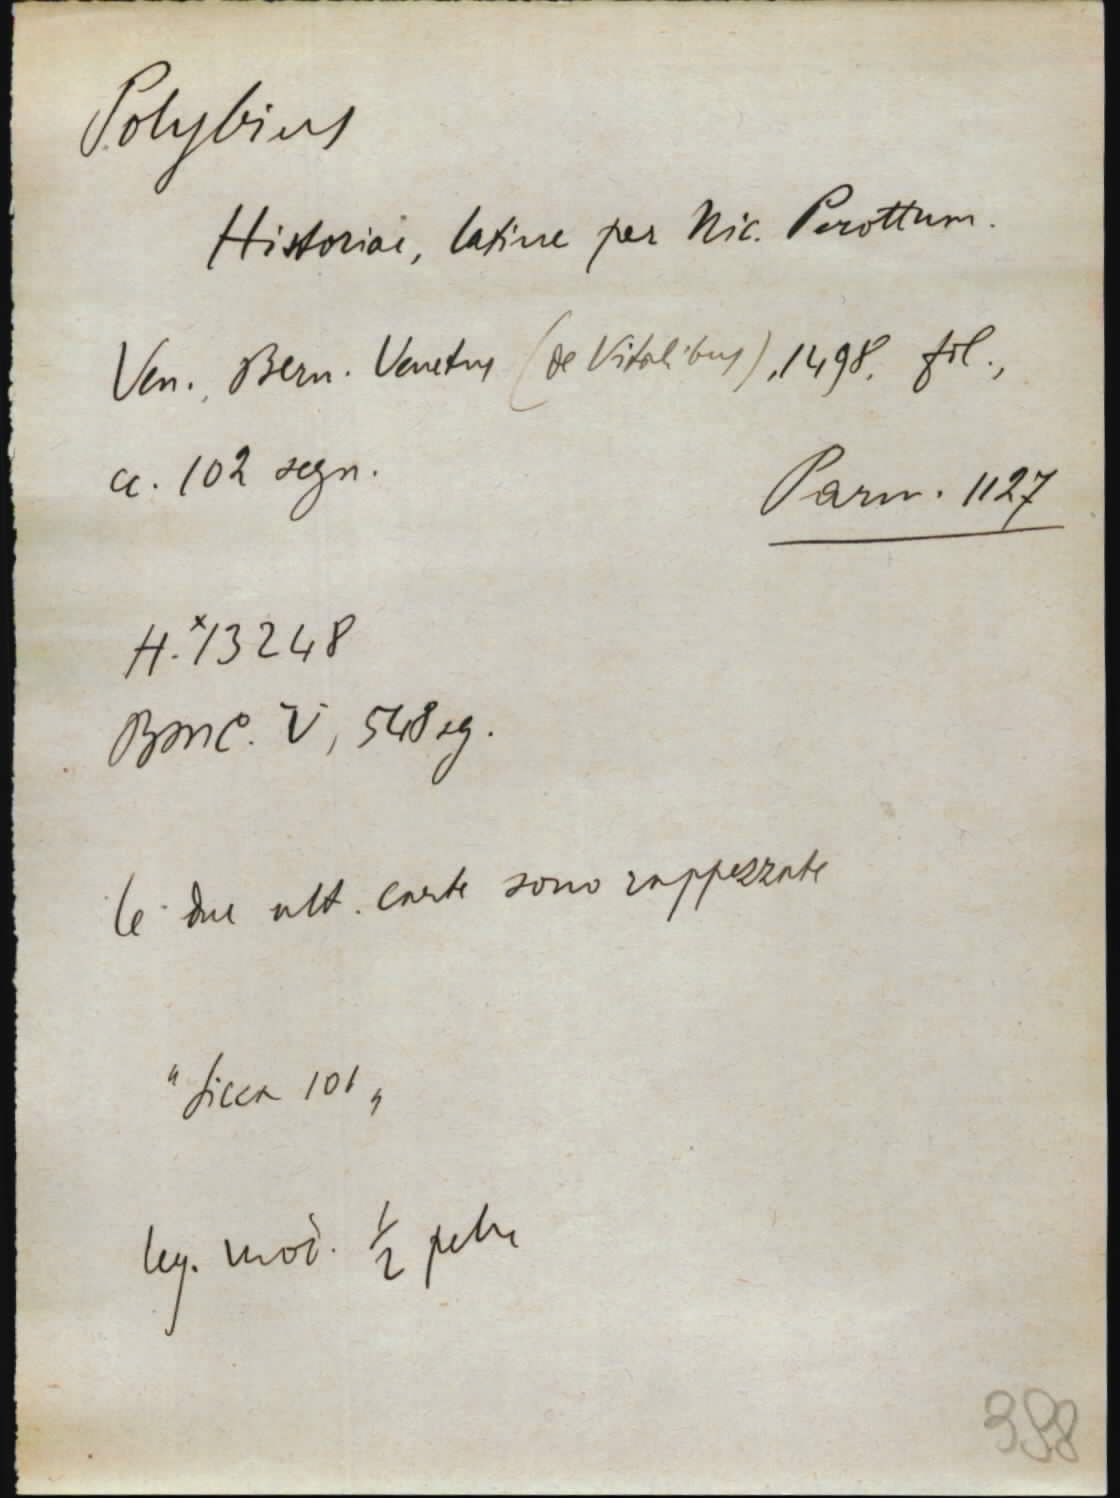 Polybius
Historiae, latine per Nic. Perottum.
Ven., Bern. Venetus (de Vitalibus), 1498. fol.,
cc. 102 segn.
Parm. 1127
H.*13248
BMC. V, 548 sg.
le due ult. carte sono rappezzate
"Sicca 101"
leg. mod. 1/2 pelle
398